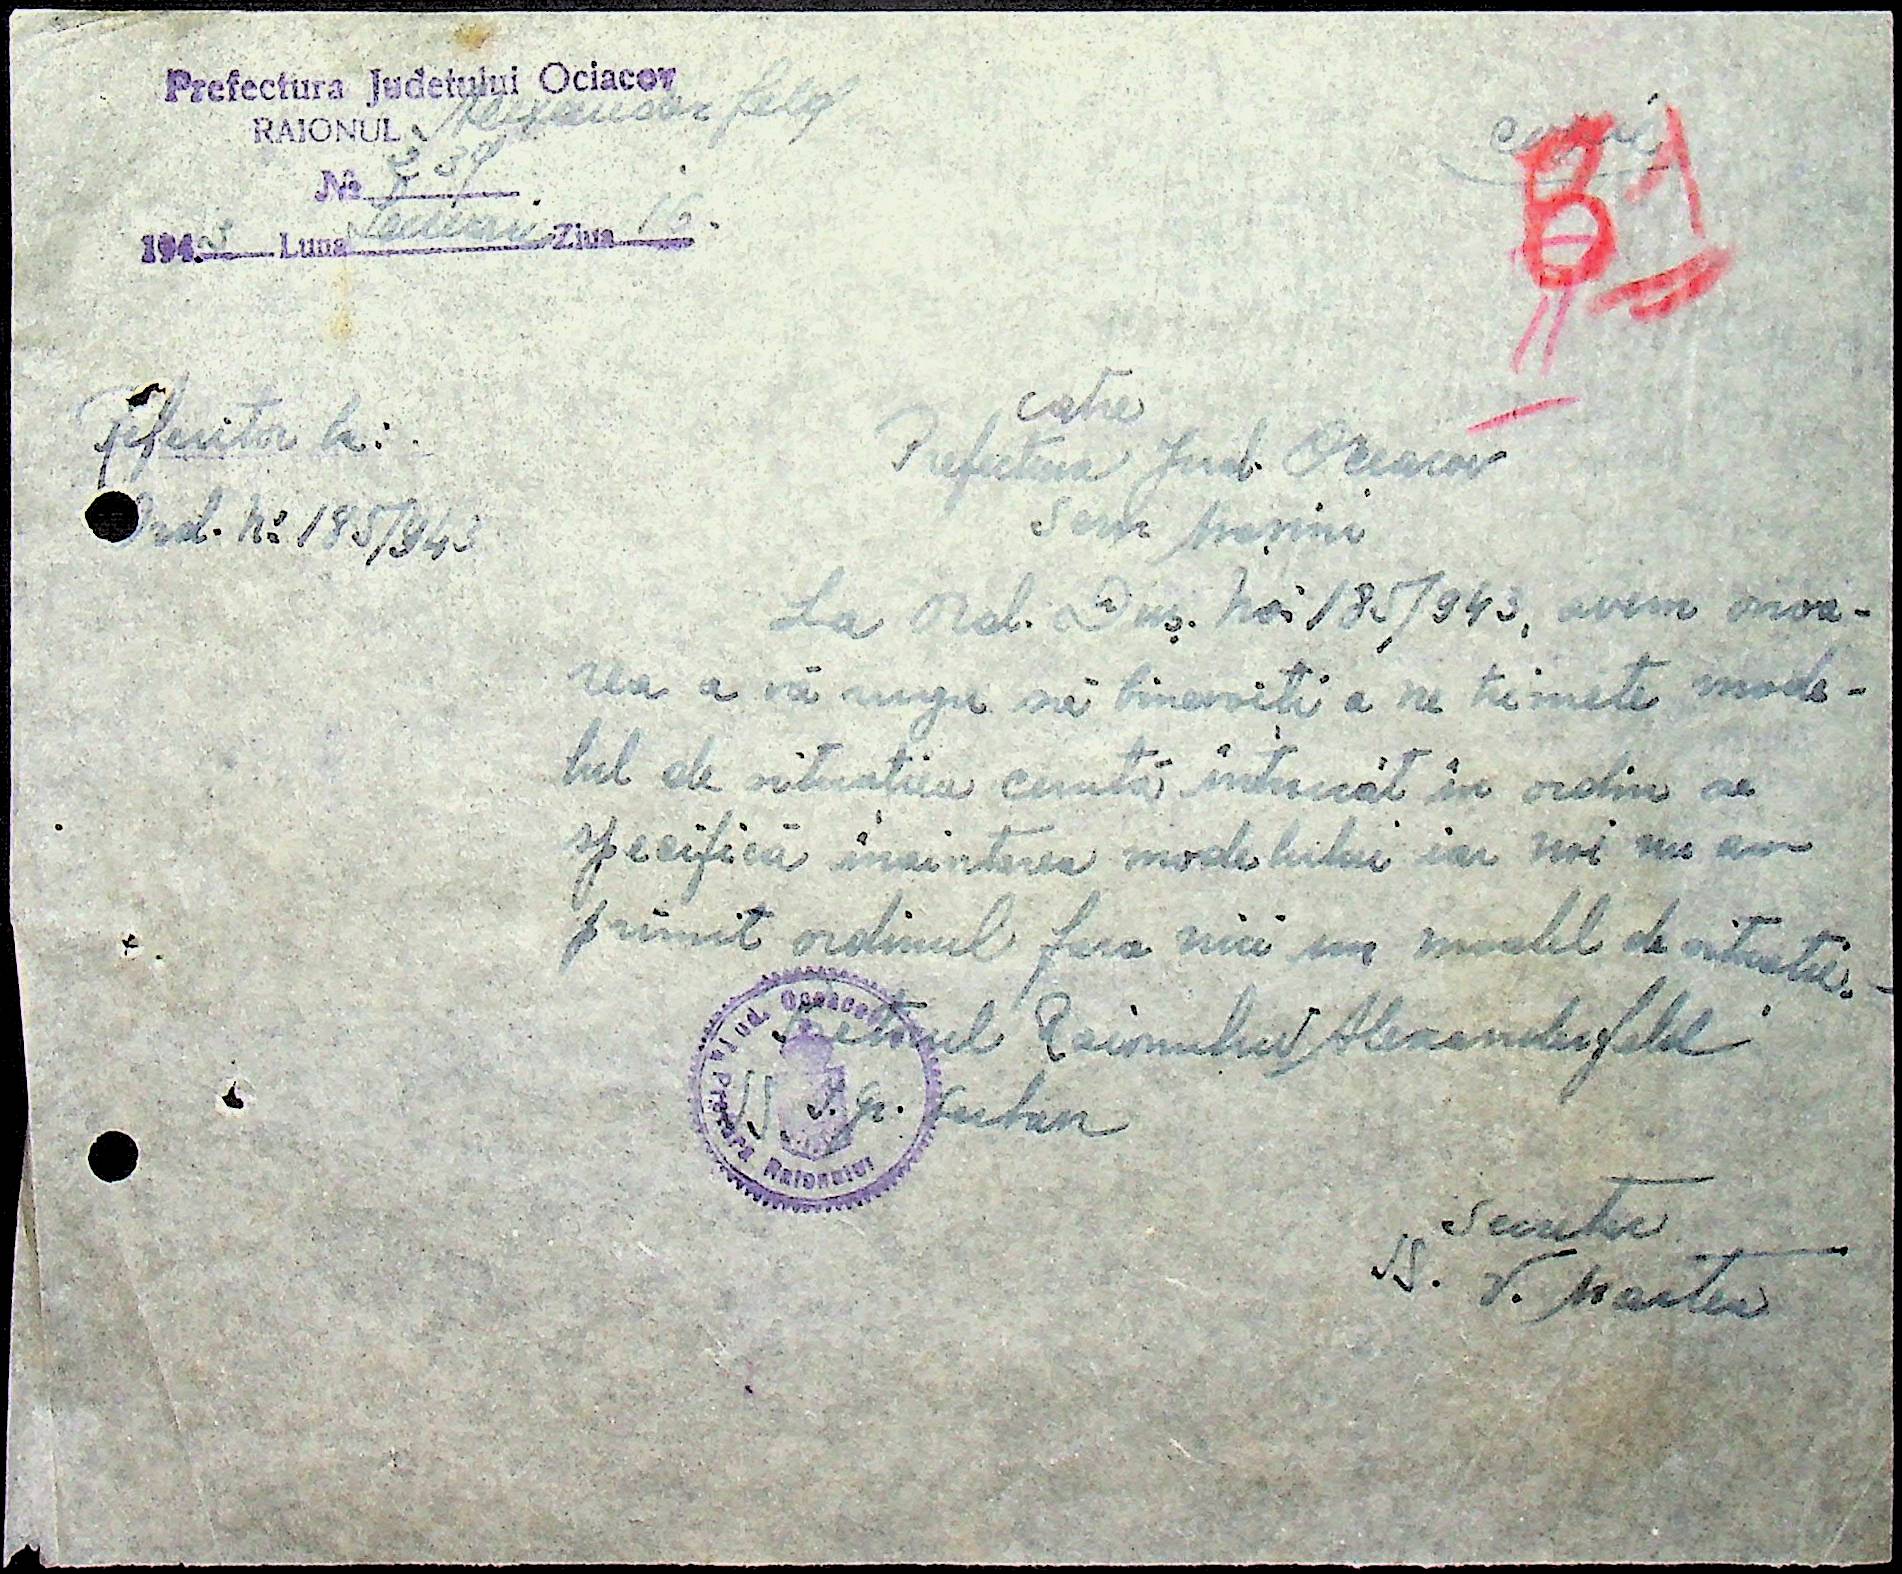 Prefectura Judetului Ociacov
RAIONUL Alexanderfeld
№ 239
1943 Luna Ianuari Ziua 16.
copie
B1
Referitor la:
Ord. No 185/943
catre
Prefectura Jud. Oceacov
La Ord. Dvs. No 185/943, avem onoa-
rea a vă ruga să binevoiti a ne trimete mode-
lul de situatiea cerută, intrucât în ordin se
specifică inaintarea modelului iar noi nu am
primit ordinul fara nici un model de situatie.-
Pretorul Raionului Alexanderfeld
ss I. Gr. Curban
Jud. Oceacov
Pretura Raionului
Secretar
ss. V. Martea